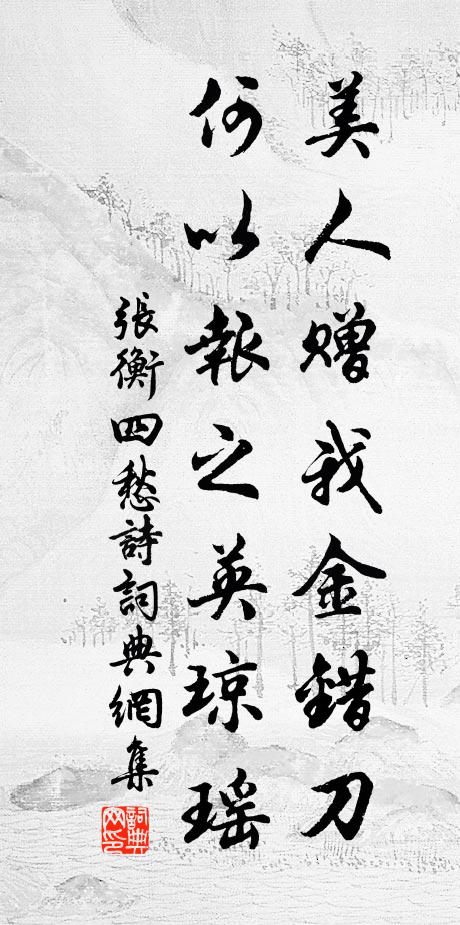 美人赠我金錯刀
何以報之英琼瑶
張衡四愁詩詞典網集
詞典网印